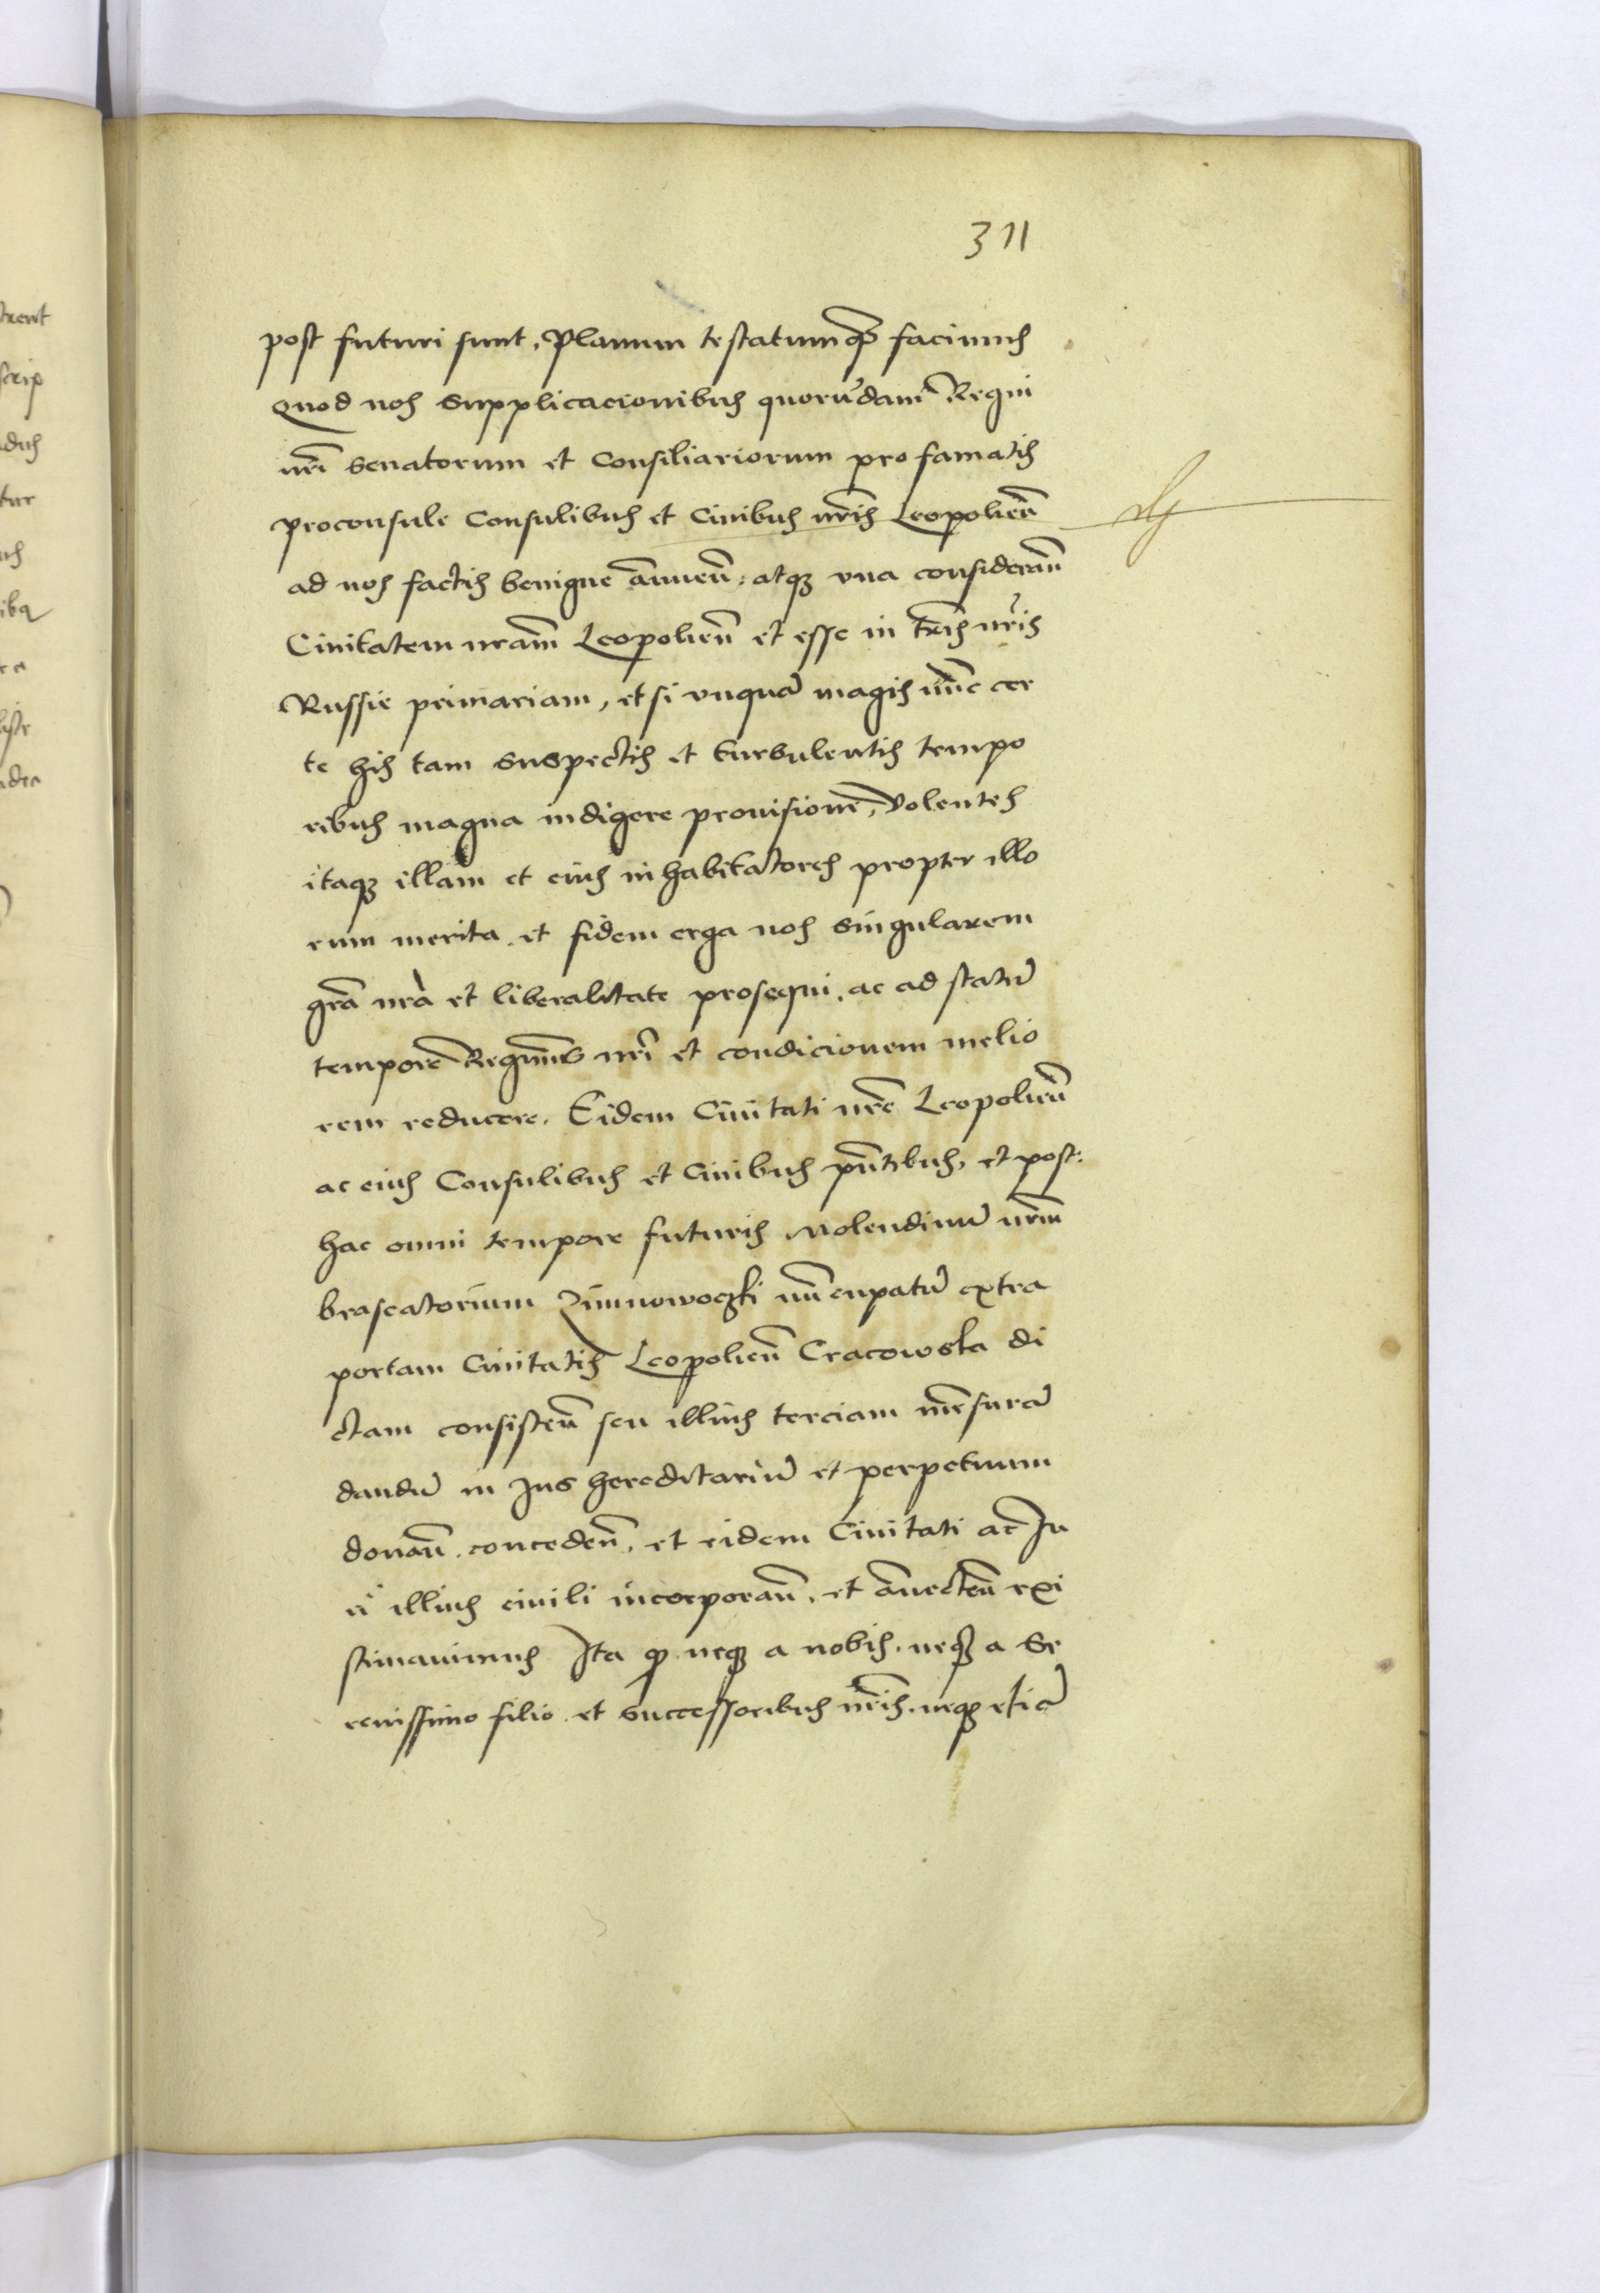 311
post futuri sunt, Planum testatumq3 facimus
Quod nos supplicacionibus quorūdam Regni
nrī senatorum et Consiliariorum pro famatis
proconsule Consulibus et Ciuibus nrīs Leopolieñ
ad nos factis benigne annueñ: atq3 vna considerañ
Ciuitatem nram̄ Leopolieñ et esse in tr̄is nrīs
Russie primariam, etsi vnquā magis nūc cer
te his tam suspectis et turbulentis tempo
ribus magna indigere prouisione, Volentes
itaq3 illam et eius inhabitatores propter illo
rum merita et fidem erga nos singularem
grā nrā et liberalitate prosequi, ac ad statū
tempore Regiminis nrī et condicionem melio
rem reducere. Eidem Ciuitati nrē Leopolieñ
ac eius Consulibus et Ciuibus pn̄tibus, et post:
hac omni tempore futuris Molendinū nrm̄
braseatorium Zimnowoczki nūcupatū extra
portam Ciuitatis Leopolieñ Cracowska di
ctam consisteñ seu illius terciam mēsurā
dandū in Jus hereditariū et perpetuum
donañ. concedeñ. et eidem Ciuitati ac Ju
ri illius ciuili incorporañ. et annecteñ exi
stimauimus Ita q neq3 a nobis. neq3 a Se
renissimo filio et successoribus nrīs. neq3 etiā